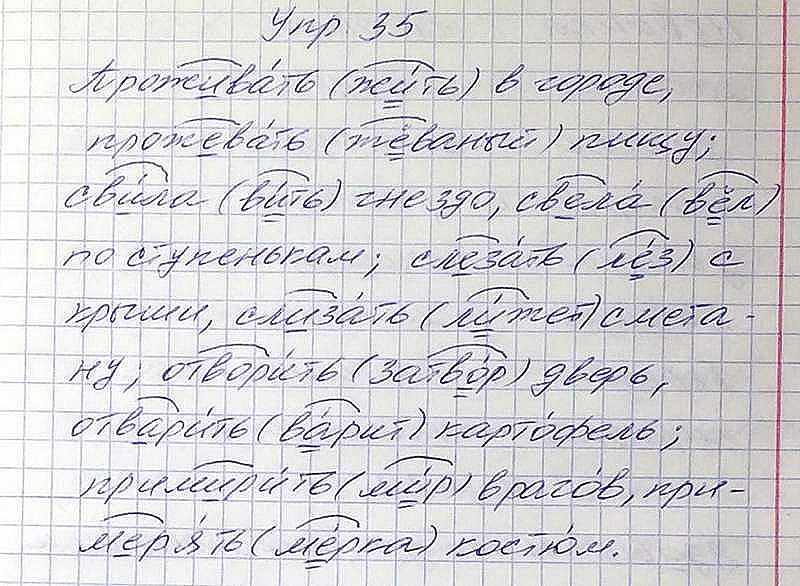 Упр 35
Прожива́ть (жи́ть) в городе,
прожева́ть (жёваный) пищу;
сви́ла (ви́ть) гнездо, свела́ (вёл)
по ступенькам; слеза́ть (ле́з) с
крыши, слиза́ть (ли́жет) смета-
ну; отвори́ть (затво́р) дверь,
отвари́ть (ва́рит) карто́фель;
примири́ть (ми́р) враго́в, при-
меря́ть (ме́рка) костю́м.